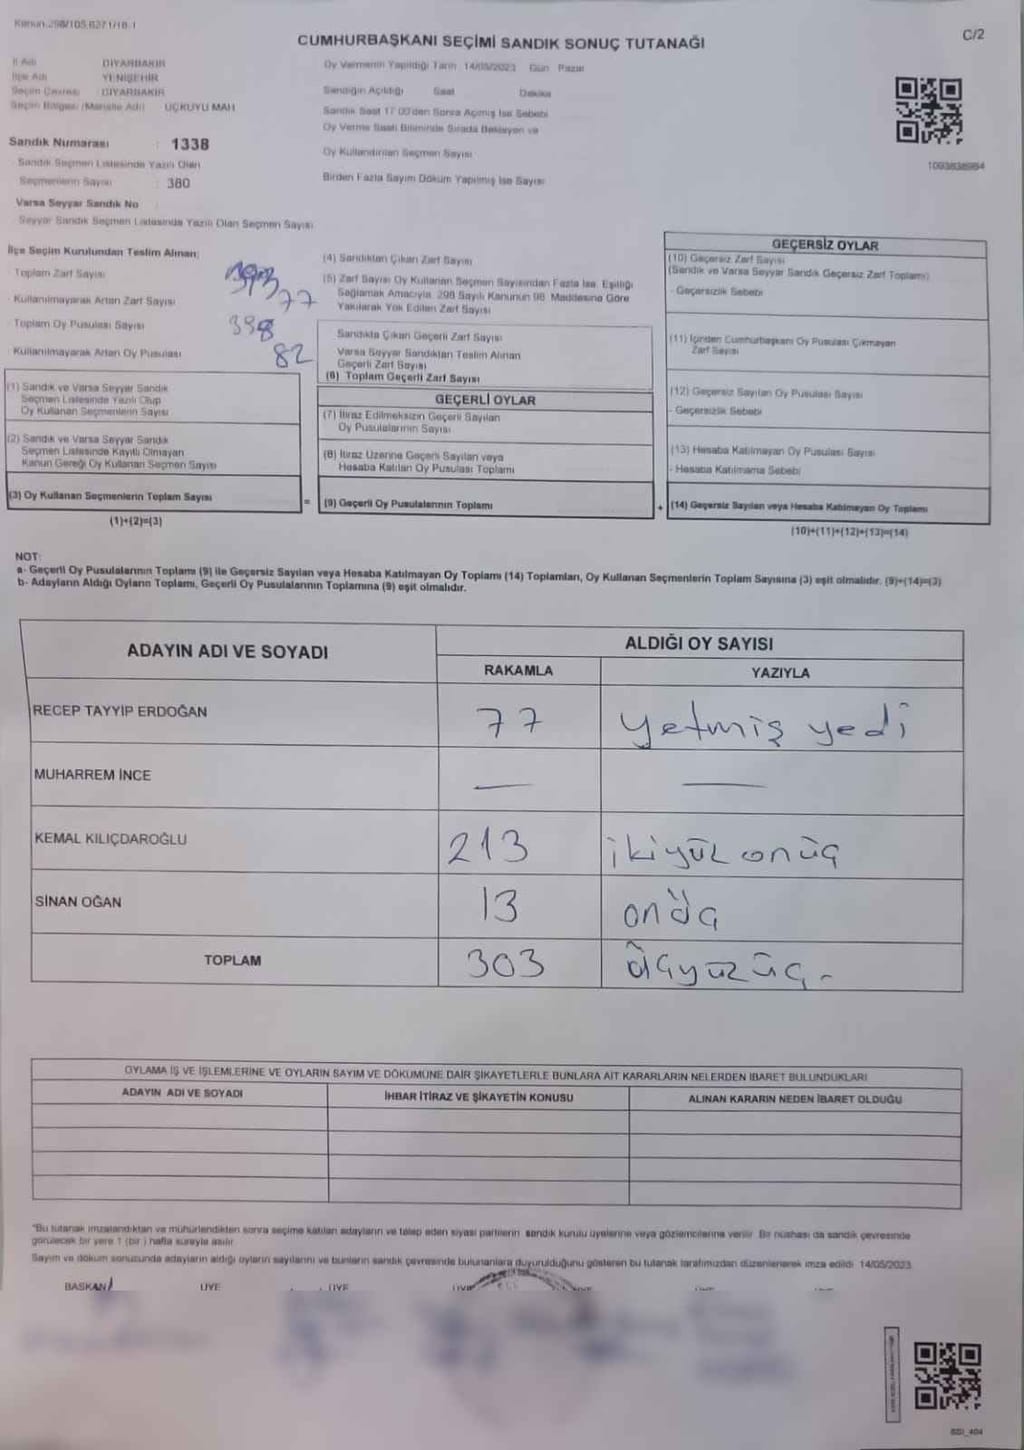 Kanun:298/105,6271/18-1
C/2
CUMHURBAŞKANI SEÇİMİ SANDIK SONUÇ TUTANAĞI
İl Adı DİYARBAKIR
İlçe Adı YENİŞEHİR
Seçim Çevresi DİYARBAKIR
Seçim Bölgesi (Mahalle Adı) ÜÇKUYU MAH
Oy Vermenin Yapıldığı Tarih 14/05/2023 Gün Pazar
Sandığın Açıldığı Saat Dakika
Sandık Saat 17.00'den Sonra Açılmış İse Sebebi
Oy Verme Saati Bitiminde Sırada Bekleyen ve
Oy Kullandırılan Seçmen Sayısı
Birden Fazla Sayım Döküm Yapılmış İse Sayısı
1093838984
Sandık Numarası : 1338
Sandık Seçmen Listesinde Yazılı Olan
Seçmenlerin Sayısı : 380
Varsa Seyyar Sandık No :
Seyyar Sandık Seçmen Listesinde Yazılı Olan Seçmen Sayısı
İlçe Seçim Kurulundan Teslim Alınan;
Toplam Zarf Sayısı
Kullanılmayarak Artan Zarf Sayısı 77
Toplam Oy Pusulası Sayısı
Kullanılmayarak Artan Oy Pusulası 82
(1) Sandık ve Varsa Seyyar Sandık
Seçmen Listesinde Yazılı Olup
Oy Kullanan Seçmenlerin Sayısı
(2) Sandık ve Varsa Seyyar Sandık
Seçmen Listesinde Kayıtlı Olmayan
Kanun Gereği Oy Kullanan Seçmen Sayısı
(3) Oy Kullanan Seçmenlerin Toplam Sayısı
=
(1)+(2)=(3)
(4) Sandıktan Çıkan Zarf Sayısı
(5) Zarf Sayısı Oy Kullanan Seçmen Sayısından Fazla İse, Eşitliği
Sağlamak Amacıyla, 298 Sayılı Kanunun 98. Maddesine Göre
Yakılarak Yok Edilen Zarf Sayısı
Sandıkta Çıkan Geçerli Zarf Sayısı
Varsa Seyyar Sandıktan Teslim Alınan
Geçerli Zarf Sayısı
(6) Toplam Geçerli Zarf Sayısı
GEÇERLİ OYLAR
(7) İtiraz Edilmeksizin Geçerli Sayılan
Oy Pusulalarının Sayısı
(8) İtiraz Üzerine Geçerli Sayılan veya
Hesaba Katılan Oy Pusulası Toplamı
(9) Geçerli Oy Pusulalarının Toplamı
+
GEÇERSİZ OYLAR
(10) Geçersiz Zarf Sayısı
(Sandık ve Varsa Seyyar Sandık Geçersiz Zarf Toplamı)
- Geçersizlik Sebebi
(11) İçinden Cumhurbaşkanı Oy Pusulası Çıkmayan
Zarf Sayısı
(12) Geçersiz Sayılan Oy Pusulası Sayısı
- Geçersizlik Sebebi
(13) Hesaba Katılmayan Oy Pusulası Sayısı
- Hesaba Katılmama Sebebi
(14) Geçersiz Sayılan veya Hesaba Katılmayan Oy Toplamı
(10)+(11)+(12)+(13)=(14)
NOT:
a- Geçerli Oy Pusulalarının Toplamı (9) ile Geçersiz Sayılan veya Hesaba Katılmayan Oy Toplamı (14) Toplamları, Oy Kullanan Seçmenlerin Toplam Sayısına (3) eşit olmalıdır. (9)+(14)=(3)
b- Adayların Aldığı Oyların Toplamı, Geçerli Oy Pusulalarının Toplamına (9) eşit olmalıdır.
ADAYIN ADI VE SOYADI
ALDIĞI OY SAYISI
RAKAMLA YAZIYLA
RECEP TAYYİP ERDOĞAN 77 yetmiş yedi
MUHARREM İNCE — —
KEMAL KILIÇDAROĞLU 213 ikiyüz onüç
SİNAN OĞAN 13 onüç
TOPLAM 303 üçyüzüç-
OYLAMA İŞ VE İŞLEMLERİNE VE OYLARIN SAYIM VE DÖKÜMÜNE DAİR ŞİKAYETLERLE BUNLARA AİT KARARLARIN NELERDEN İBARET BULUNDUKLARI
ADAYIN ADI VE SOYADI İHBAR İTİRAZ VE ŞİKAYETİN KONUSU ALINAN KARARIN NEDEN İBARET OLDUĞU
"Bu tutanak imzalandıktan ve mühürlendikten sonra seçime katılan adayların ve talep eden siyasi partilerin sandık kurulu üyelerine veya gözlemcilerine verilir. Bir nüshası da sandık çevresinde
görülecek bir yere 1 (bir) hafta süreyle asılır.
Sayım ve döküm sonucunda adayların aldığı oyların sayılarını ve bunların sandık çevresinde bulunanlara duyurulduğunu gösteren bu tutanak tarafımızdan düzenlenerek imza edildi. 14/05/2023
BAŞKAN ÜYE ÜYE
SSI_404